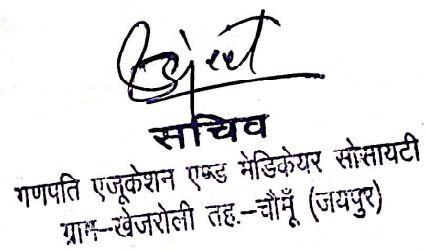 सचिव
गणपति एजूकेशन एण्ड मेडिकेयर सोसायटी
ग्राम-खेजरोली तह.-चौमूँ (जयपुर)